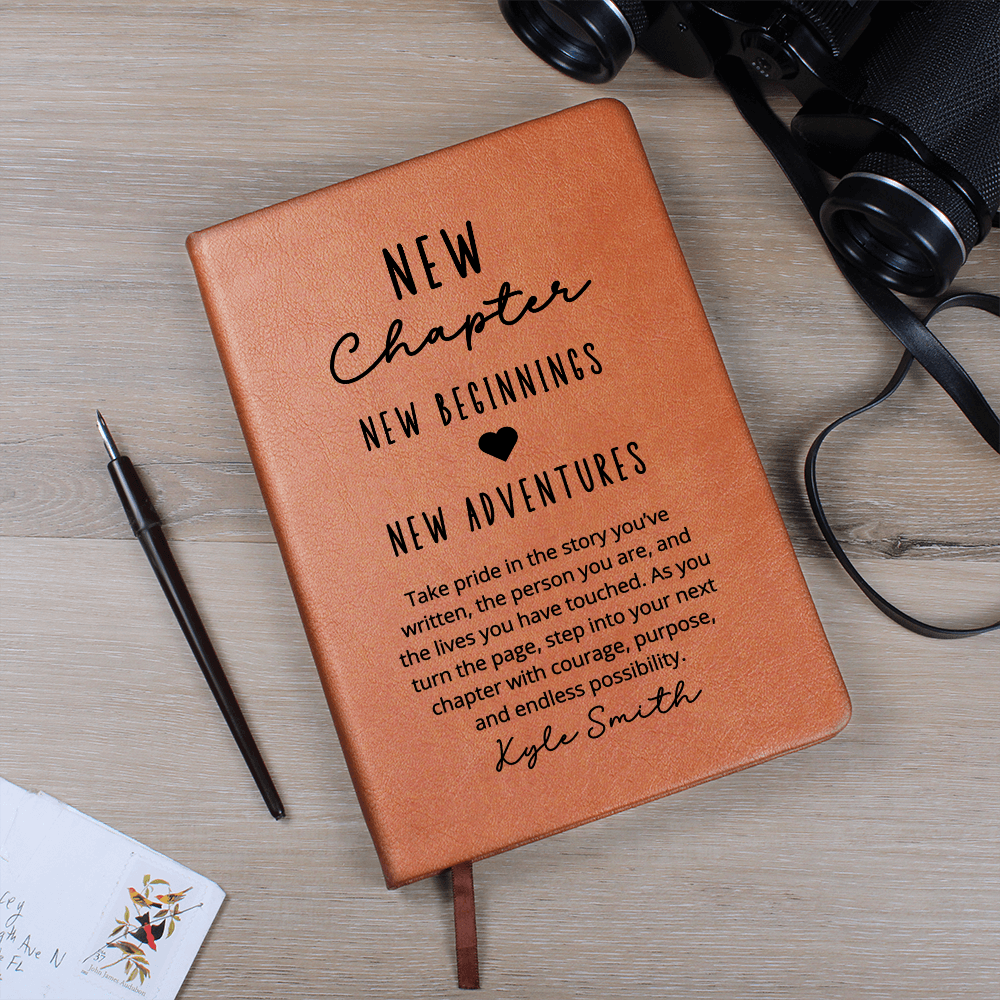 NEW
Chapter
NEW BEGINNINGS
NEW ADVENTURES
Take pride in the story you've
written, the person you are, and
the lives you have touched. As you
turn the page, step into your next
chapter with courage, purpose,
and endless possibility.
Kyle Smith
cey
Ave N
FL
37
John James Audubon